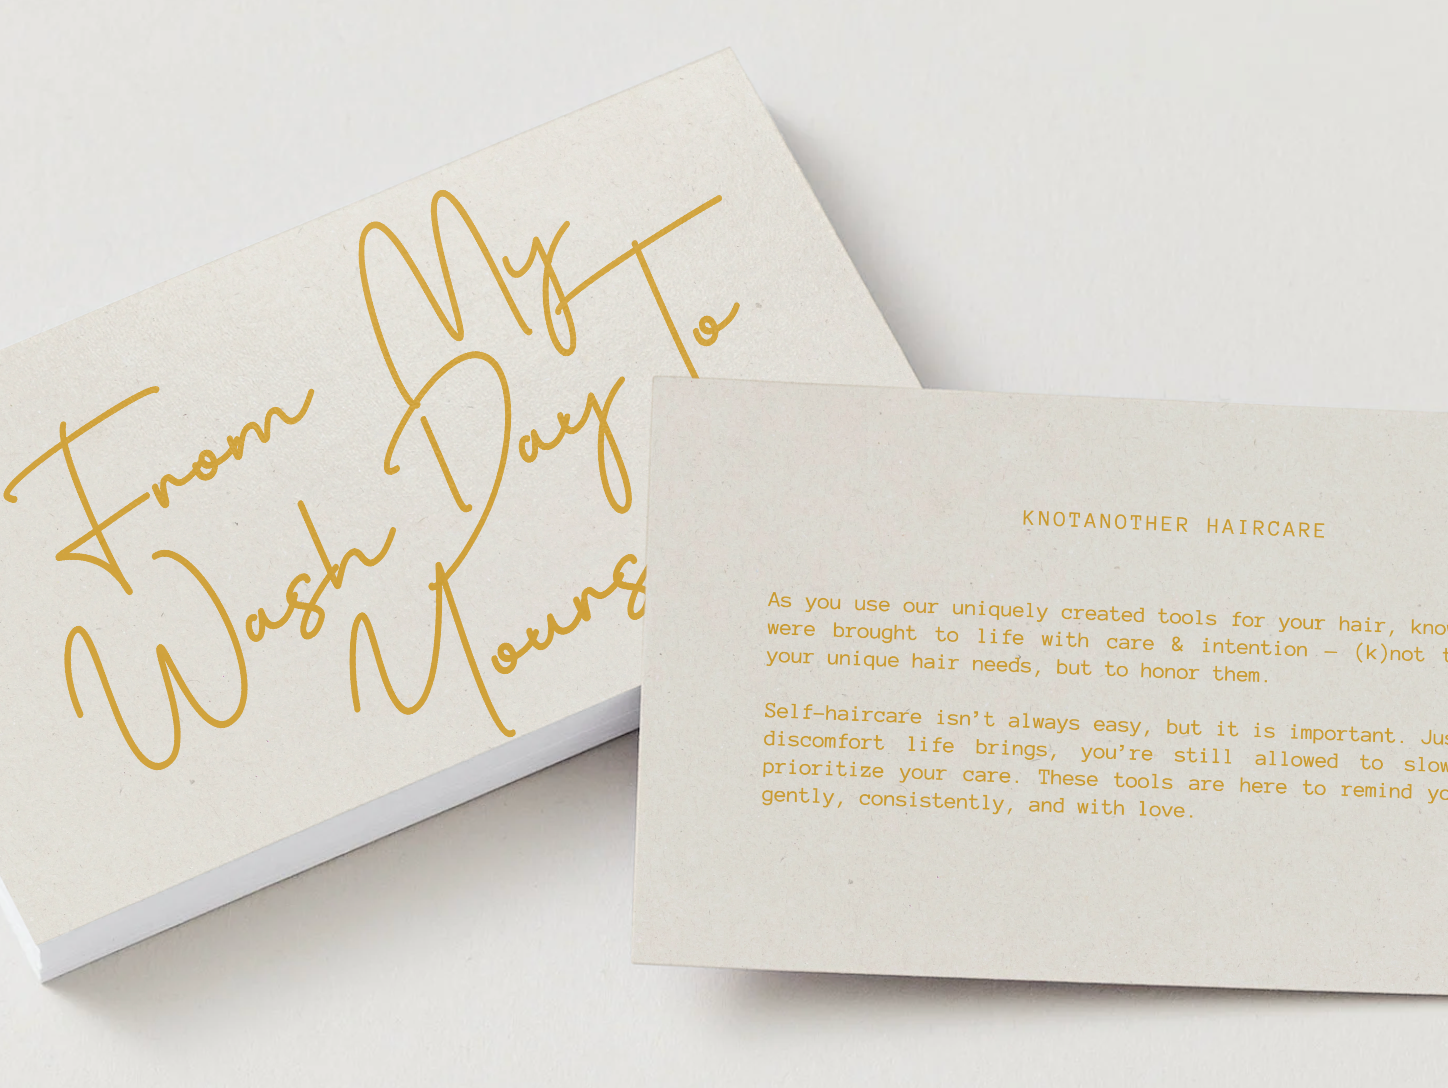 From My
Wash Day To
Yours
KNOTANOTHER HAIRCARE
As you use our uniquely created tools for your hair,
were brought to life with care & intention — (k)not
your unique hair needs, but to honor them.
Self-haircare isn't always easy, but it is important.
discomfort life brings, you're still allowed to
prioritize your care. These tools are here to remind
gently, consistently, and with love.